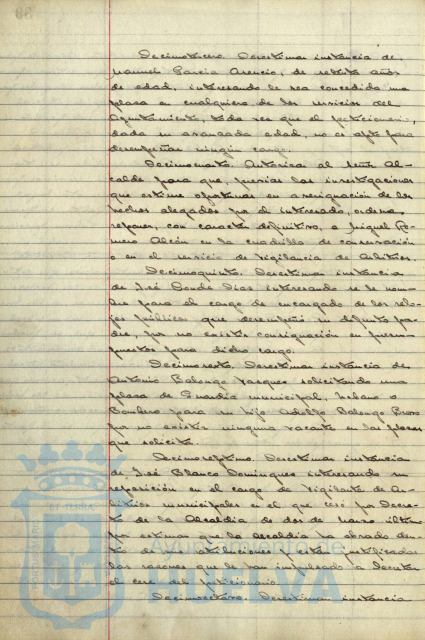 Decimotercero. Desestimar instancia de
Manuel Garcia Asencio, de setenta años
de edad, interesando le sea concedida una
plaza en cualquiera de los servicios del
Ayuntamiento, toda vez que el peticionario,
dada su avanzada edad, no es apto para
desempeñar ningún cargo.
Decimocuarto. Autorizar al Señor Al-
calde para que, previas las investigaciones
que estime oportunas en averiguación de los
hechos alegados por el interesado, ordene
reponer, con caracter definitivo, a Miguel Ro-
mero Alcón en la cuadrilla de conservación
o en el servicio de Vigilancia de Arbitrios.
Decimoquinto. Desestimar instancia
de José Conde Días interesando se le nom-
bre para el cargo de encargado de los relo-
jes públicos que desempeñó su difunto pa-
dre, por no existir consignación en presu-
puestos para dicho cargo.
Decimosexto. Desestimar instancia de
Antonio Balongo Vasques solicitando una
plaza de Guardia municipal, Sereno o
Bombero para su hijo Adolfo Balongo
por no existir ninguna vacante en las plazas
que solicita.
Decimoséptimo. Desestimar instancia
de José Blanco Domingues interesando su
reposición en el cargo de Vigilante de Ar-
bitrios municipales en el que cesó por Decre-
to de la Alcaldía de dos de Marzo último
por estimar que la Alcaldía ha obrado den-
tro de sus atribuciones y estar justificadas
las razones que le han impulsado a decretar
el cese del peticionario.
Decimoctavo. Desestimar instancia
Ayuntamiento de
HUELVA